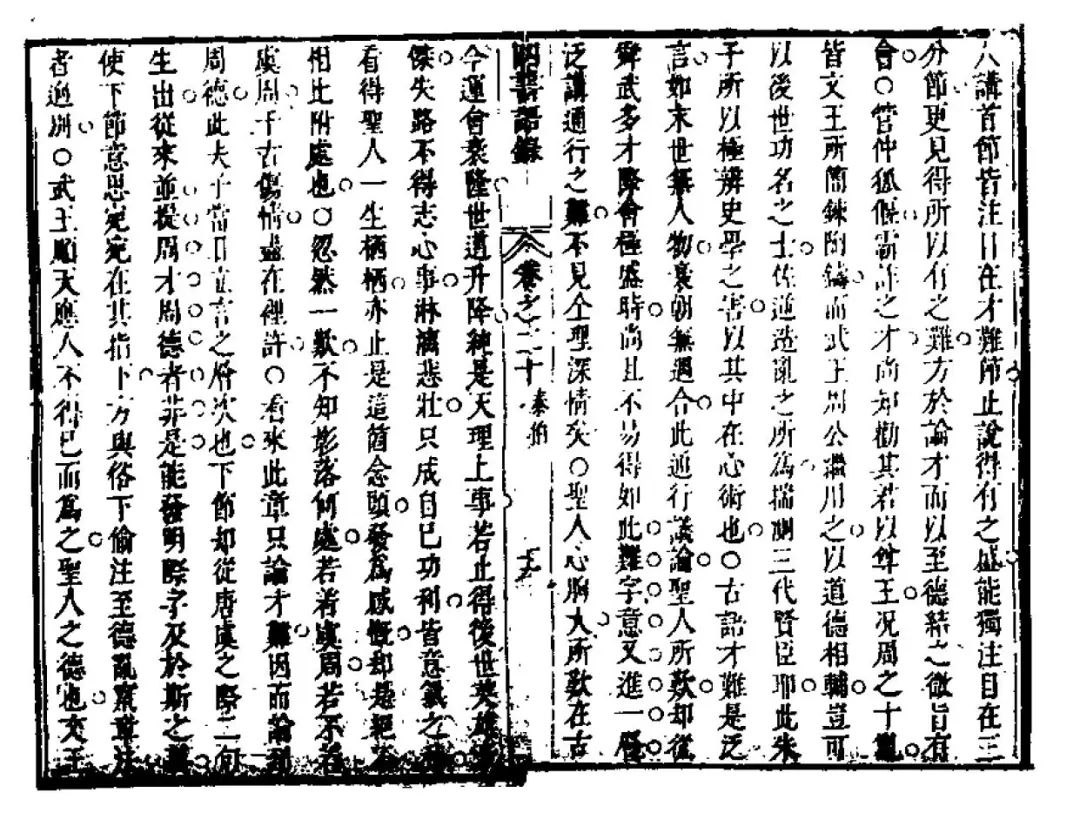 人講首節皆注目在才難節止說得有之盛能獨注目在三
分節更見得所以有之難方於論才而以至德結之微旨有
合○管仲狐偃霸詐之才尚知勸其君以尊王況周之十亂
皆文王所簡鍊陶鑄而武王周公繼用之以道德相輔豈可
以後世功名之士佐逆造亂之所為揣測三代賢臣耶此朱
子所以極辨史學之害以其中在心術也○古語才難是泛
言如末世無人物衰朝無遇合此通行議論聖人所歎却從
舜武多才際會極盛時尚且不易得如此難字意又進一層
泛講通行之難不見全聖深情矣○聖人心胸大所歎在古
四書語錄 卷之二十 泰伯
今運會衰隆世道升降純是天理上事若止得後世英雄
傑失路不得志心事淋漓悲壯只成自己功利皆意氣之
看得聖人一生栖栖亦止是這箇念頭發為感慨却是
相比附處也○忽然一歎不知影落何處若著虞周若不著
虞周千古傷情盡在裡許○看來此章只論才難因而論到
周德此夫子當日立言之層次也下節却從唐虞之際二句
生出從來並提周才周德者非是能發明際字及於斯之
使下節意思宛宛在其指下方與俗下偷注至德亂齊章法
者迥別○武王順天應人不得已而為之聖人之德也文王